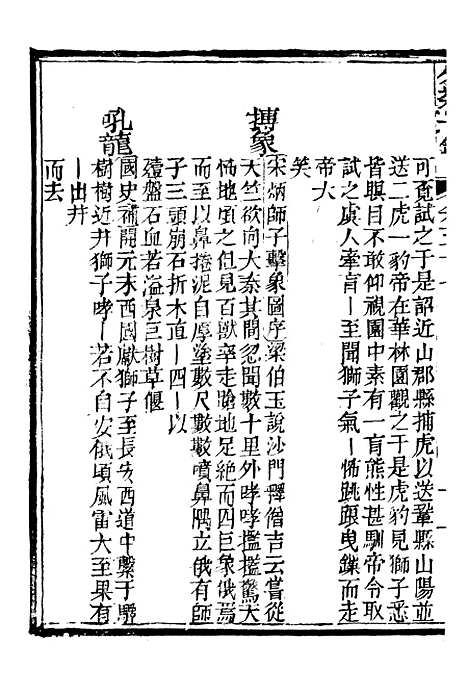 可覔試之于是詔近山郡縣捕虎以送鞏縣山陽並
送二虎一豹帝在華林園觀之于是虎豹見獅子悉
皆瞑目不敢仰視園中素有一盲熊性甚馴帝令取
試之虞人牽盲｜至聞獅子氣｜怖跳踉曳鏁而走
帝大
笑
搏象
宋炳師子擊象圖序梁伯玉說沙門釋僧吉云嘗從
天竺欲向大秦其間忽聞數十里外哮哮㩜㩜驚天
怖地頃之但見百獸率走蹌地足絶而四巨象俄焉
而至以鼻捲泥自厚塗數尺數數噴鼻隅立俄有師
子三頭崩石折木直｜四｜以
盤石血若溢泉巨樹草偃
吼龍
國史補開元末西國獻獅子至長安西道中繫于驛
樹樹近井獅子哮｜若不自安俄頃風雷大至果有
｜出井
而去